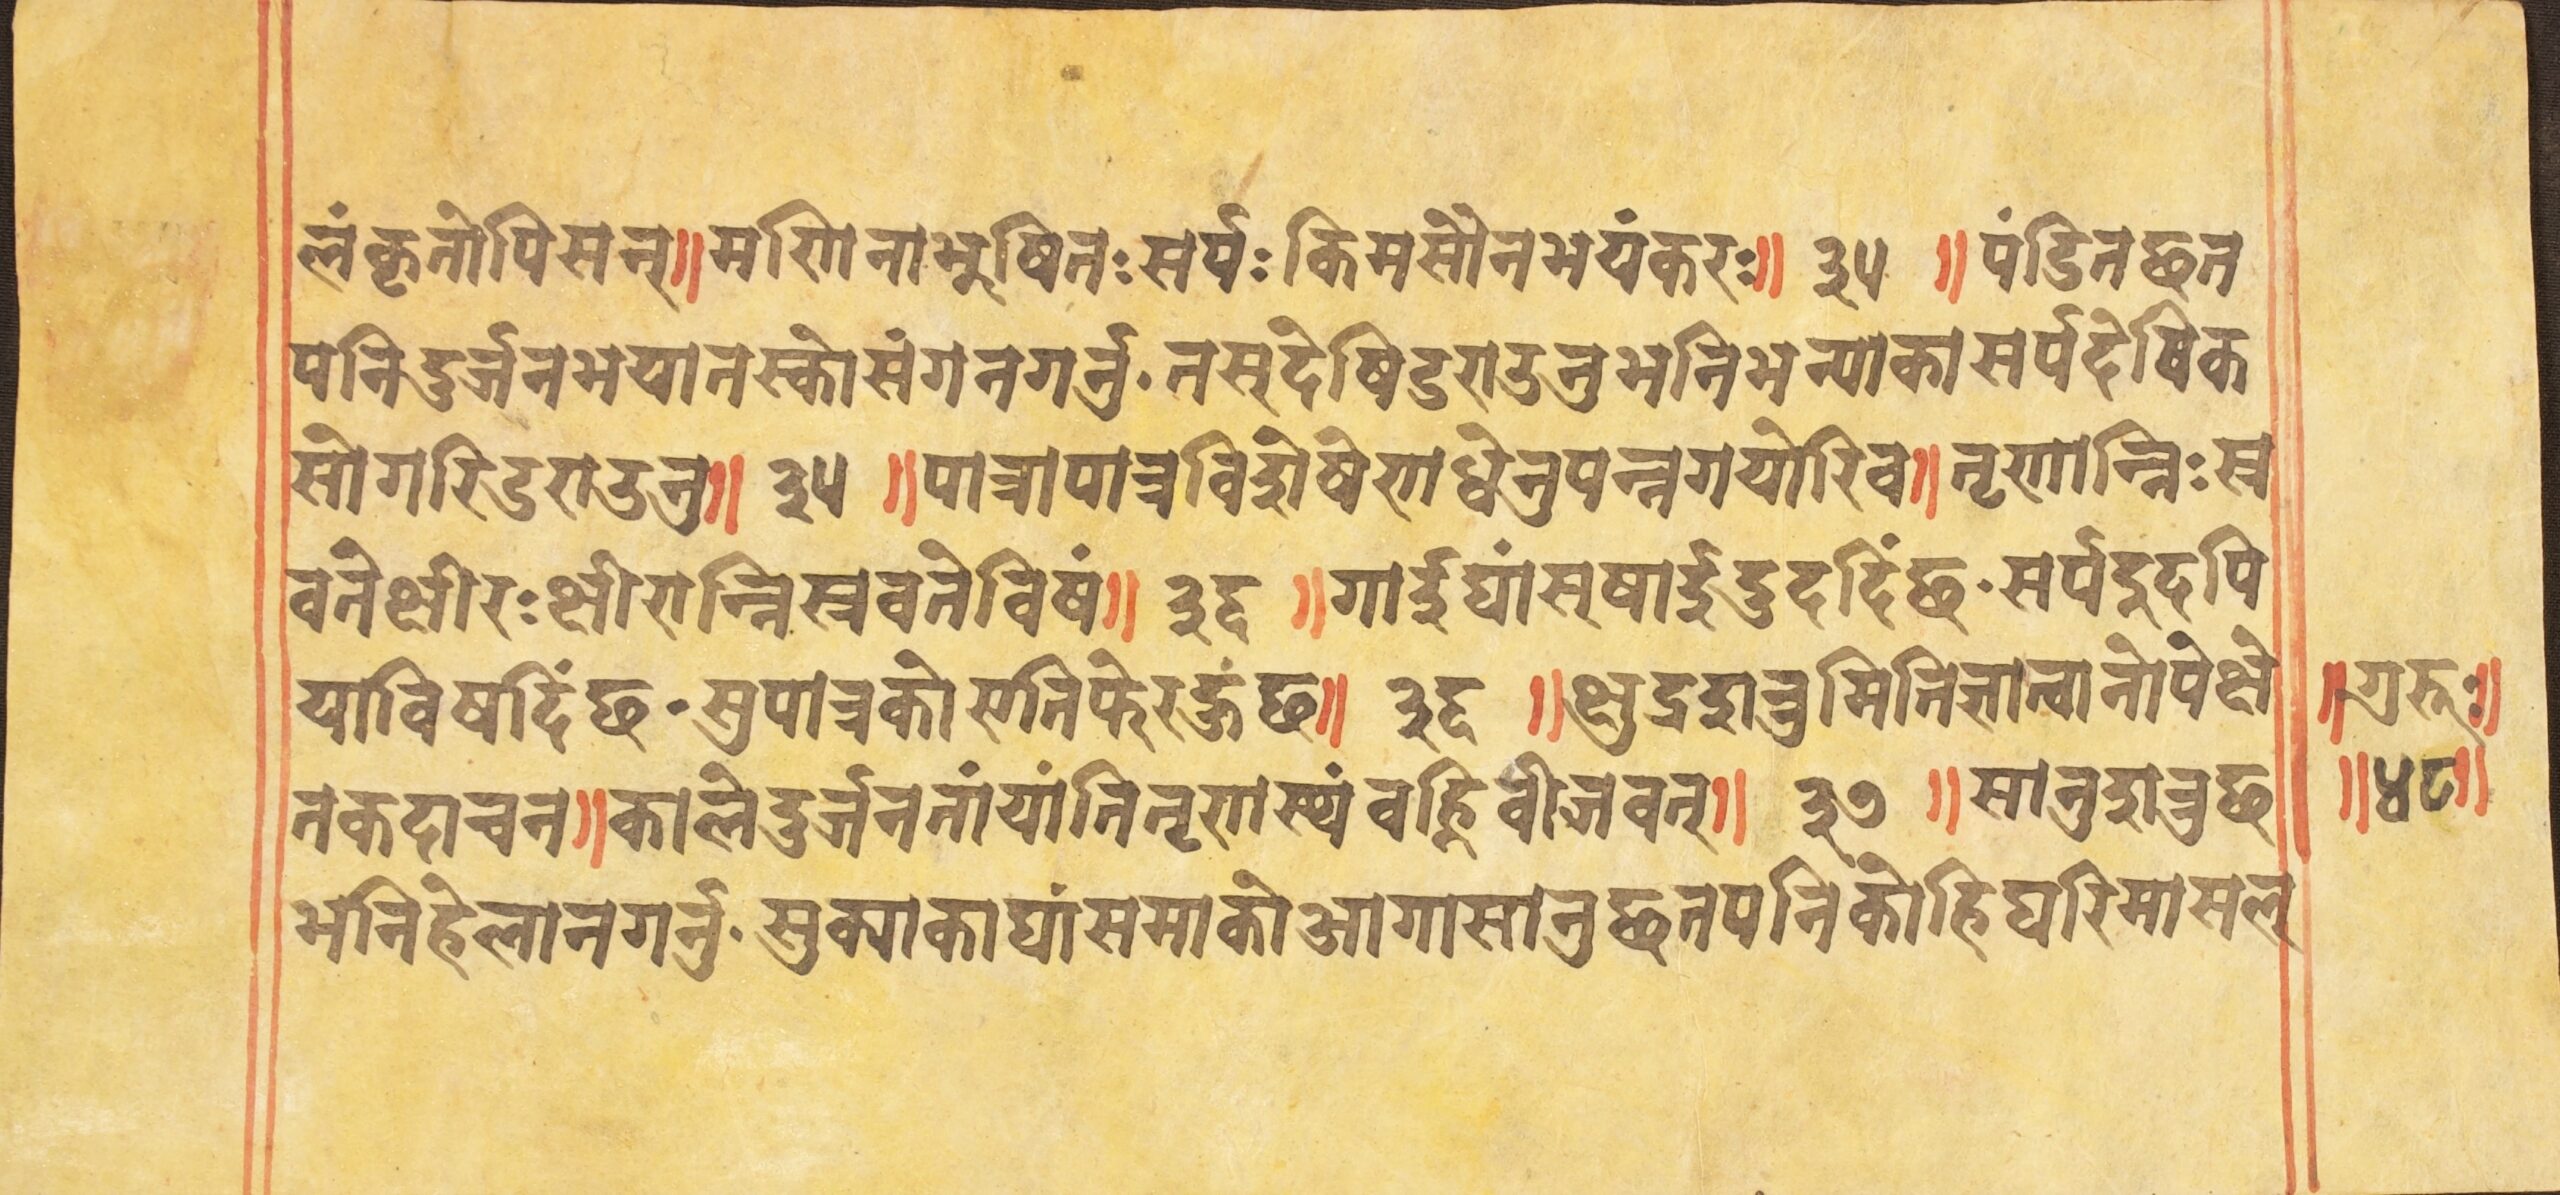 लंकृतोपि सन्॥ मणिना भुषितः सर्पः किमसौ न भयंकरः॥ ३५ ॥ पंडित छन
पनि दुर्जन भयानस्को संग नगर्नु. तस् देषि डराउनु भनि भन्याका सर्प देषि क
सो गरि डराउनु॥ ३५ ॥ पात्रापात्र विशेषेण धेनुपन्नगयोरिव॥ तृणान्निःस्र
वते क्षीरः क्षीरान्निस्रवते विषं॥ ३६ ॥ गाई घांस् षाई दुद दिंछ. सर्प दूद पि
या विष दिंछ. सुपात्रको एति फेर हुंछ॥ ३६ ॥ क्षुद्र शत्रुमिति ज्ञात्वा नोपेक्षे
त कदाचन॥ काले दुर्जनतां यांति तृणास्थं वह्नि वीजवत्॥ ३७ ॥ सानु शत्रु छ
भनि हेला नगर्नु. सुक्याका घांसमाको आगा सानु छ तपनि कोहि घरिमा सल्
॥गुरुः॥
॥४८॥